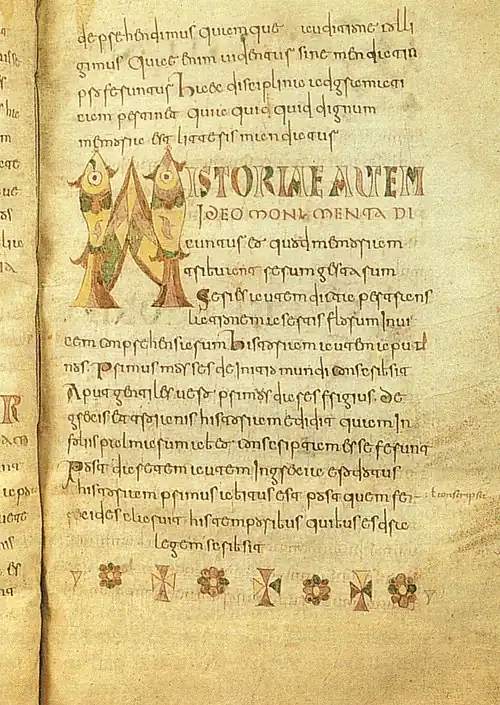 deprehendimus quam que auditione colli
gimus Quae enim uidentur sine mendatio
proferuntur Haec disciplina adgramati
cam pertinet quia quid quid dignum
memoria est litteris mandatur
HISTORIAE AUTEM
IDEO MONUMENTA DI
cuntur eo quod memoriam
tribuant rerum gestarum
Series autem dicta per trans
lationem a sertis florum inui
cem conprehensarum Historiam autem aput
nos Primus moses de initio mundi conscribsit
Aput gentiles uero primus dares frigius De
grecis et troianis historiam edidit quam in
foliis palmarum ab eo conscriptam esse ferunt
Post daretem autem ingrecia erodotus
historiam primus abitus est post quem fere
cides claruit his temporibus quibus esdra
legem scribsit